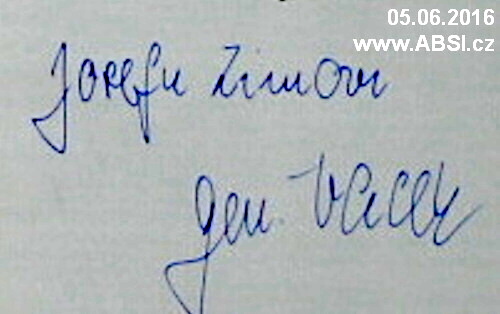 05.06.2016
www.ABSI.cz
Josefu Zimovi
gen. Vacek